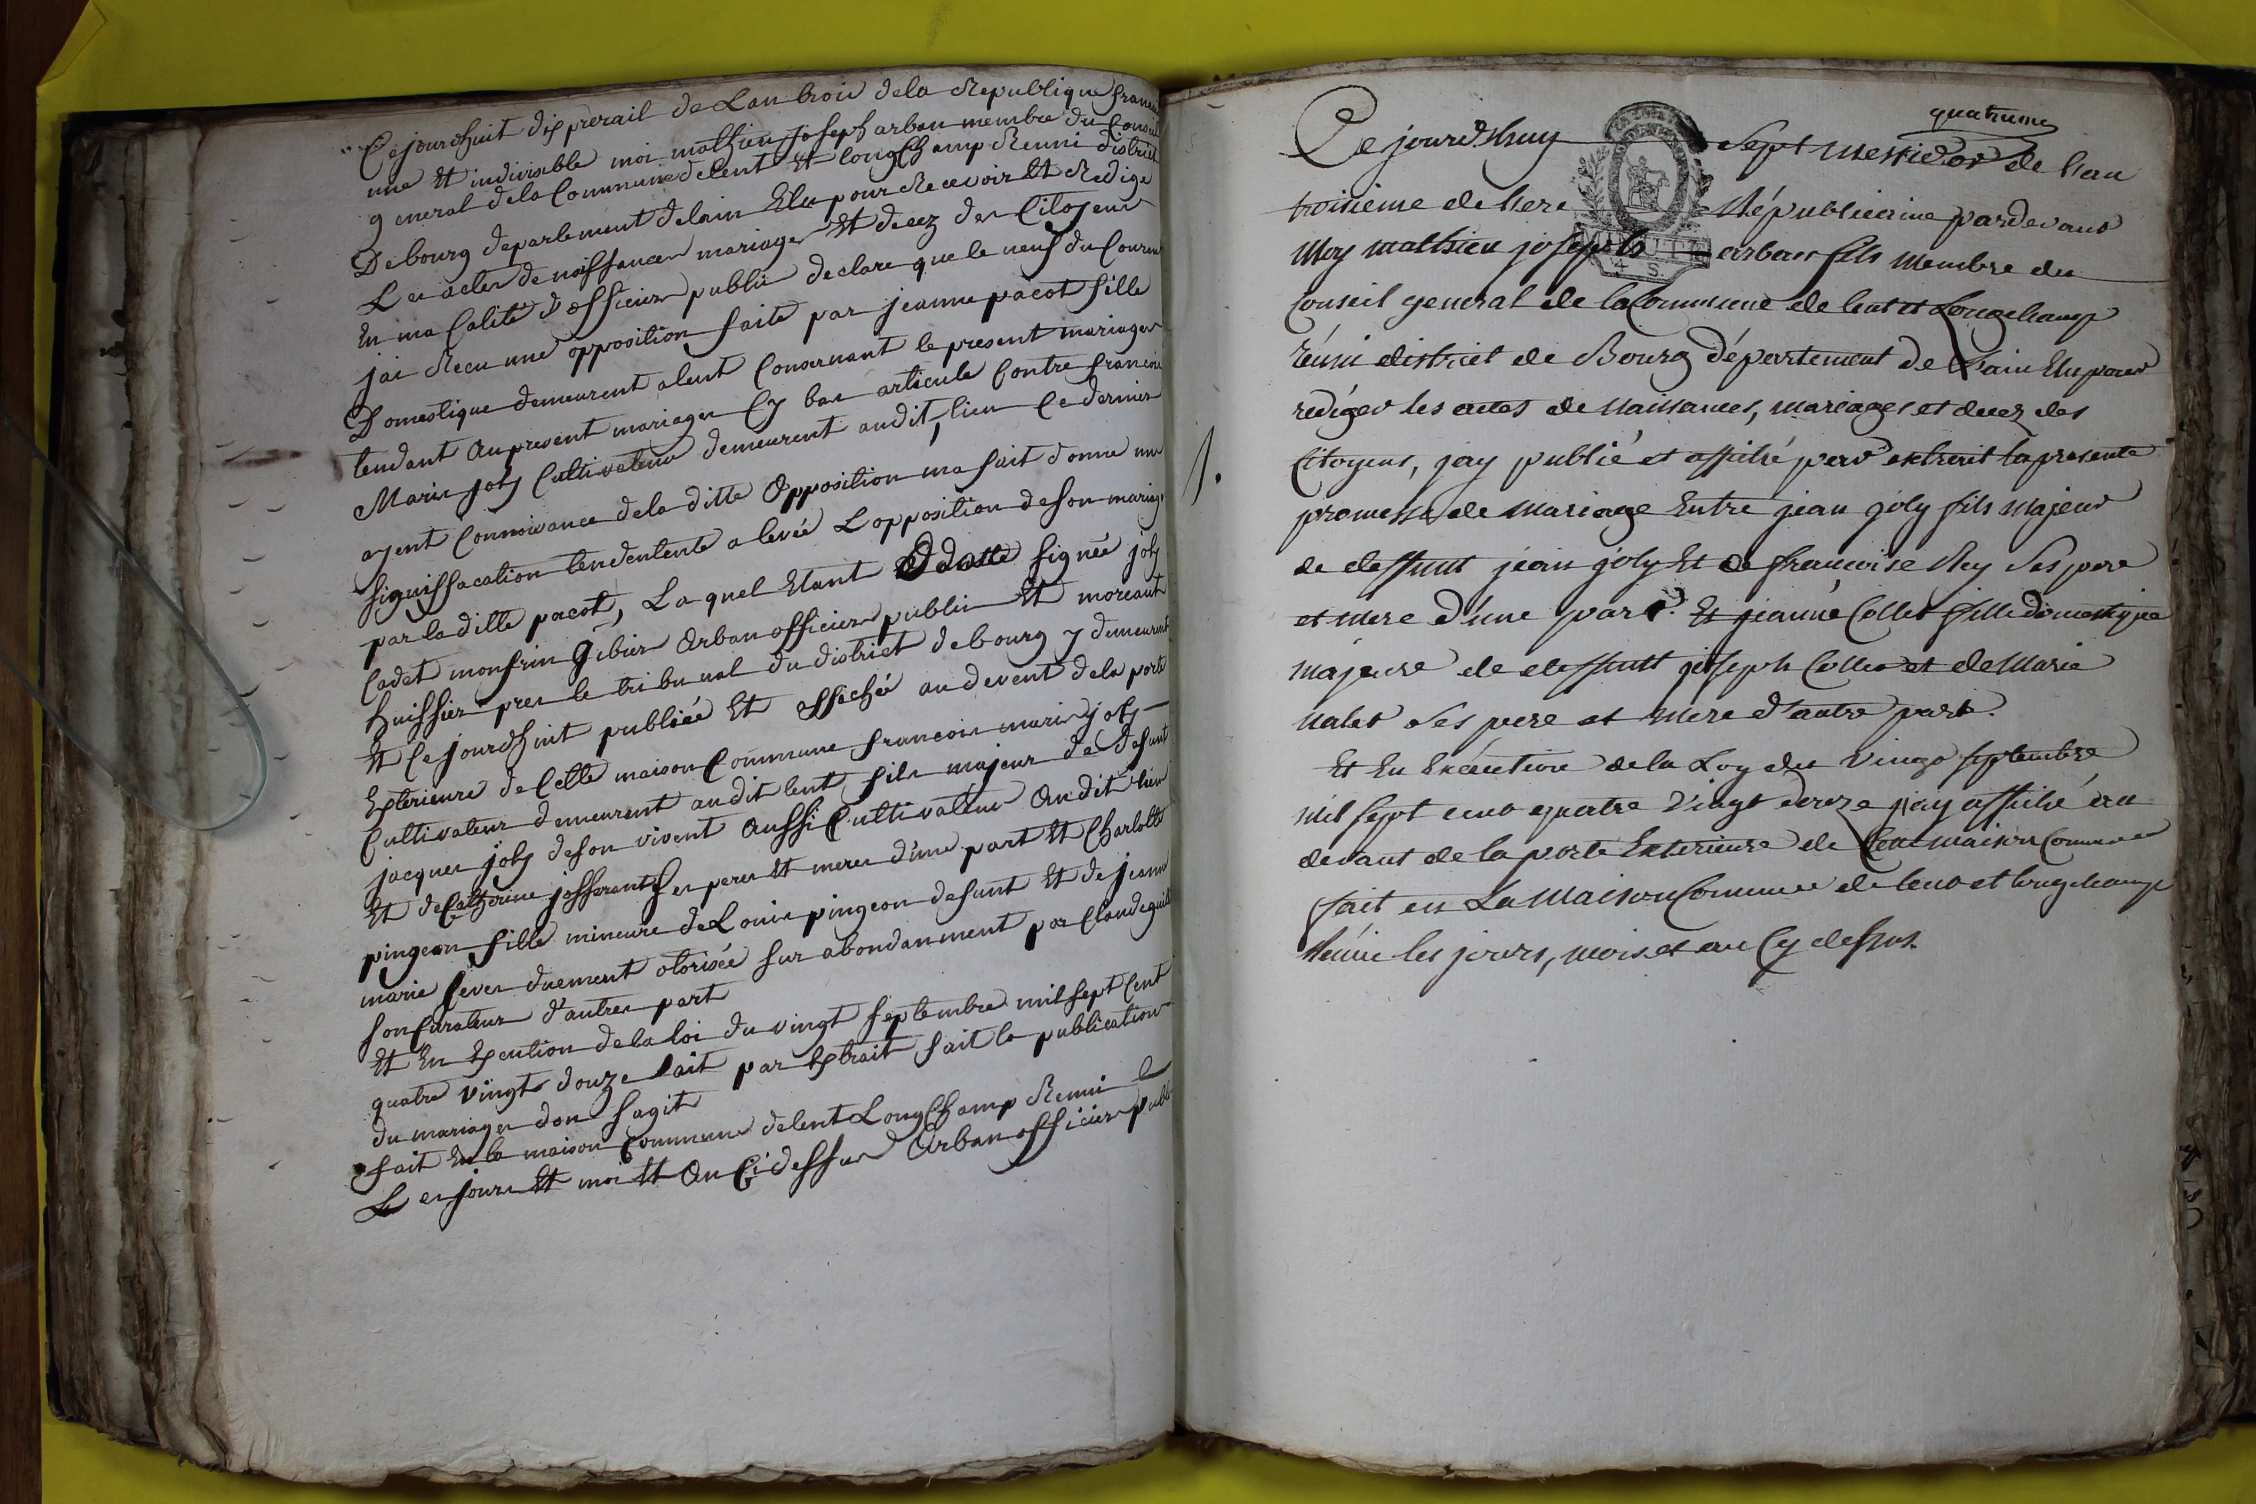 Ce jourdhuit dix prerail de Lan trois dela Republique francai
une Et indivisible moi mathieu joseph arban membre du Conseil
general dela Commune delent Et long Champ Reuni district
De bourg departement delain Elu pour Recevoir Et Redige
Les actes de naissances mariages Et decez des Citoyens
En ma Calité d'officier public declare que le neuf du Courent
jai Recu une opposition faite par jeanne pacot fille
Domestique demeurent alent Concernant le present mariages
tendant Au present mariages Cy bas articule Contre francois
Marie joly Cultivateur demeurent audit lieu Ce dernier
ayent Connoisance dela ditte Opposition ma fait donne une
signiffacation tendentente a levée L'opposition de son mariage
par la ditte pacot, Laquel Etant Edatté signée joly
Cadet monfrin Gibier Arban officier public Et moreaut
huissier pres le tribunal du district de bourg y demeurent
Et Ce jourdhuit publiée Et affichée au devent dela porte
Exterieure de Cette maison Commune francois marie joly
Cultivateur demeurent audit lent fils majeur de defunt
jacques joly de son vivent Aussi Cultivateur Audit lieu
Et de Catherine josserant Ses peres Et meres d'une part Et Charlotte
pingeon fille mineure de Louis pingeon defunt Et de jeanne
marie fever duement otorisée sur abondanment par Claude guill
son Curateur d'autres part
Et En Exécution de la loi du vingt septembre mil sept Cent
quatre vingts douze Lait par Extrait fait la publication
du mariages don sagit
fait En la maison Commune delent Long Champ Reuni
Les jours Et moi Et An Ci dessus Arban officier publ
quatrieme
Ce jourd'huy Sept Messidor de lan
troisieme de lere Républicaine pardevant
Moy mathieu joseph arban fils Membre du
Conseil general de la Commune de lent et Longchamp
réuni district de Bourg département de L'ain Elu pour
rédiger les actes de Naissances, mariages et decez des
1.
Citoyens, jay publié et affiché par extrait la presente
promesse de Mariage Entre jean joly fils Majeur
de deffunt jean joly Et de francoise Rey Ses pere
et mere d'une part. Et jeanne Collet fille domestique
majeure de deffunt joseph Collet et de Marie
Nalet Ses pere et mere d'autre part.
Et En Exécution de la Loy du Vingt septembre
Mil sept cent quatre Vingt douze j'ay affiché au
devant de la porte Exterieure de Cette maison Commune
fait en La Maison Commune de lent et longchamp
Réunie les jours, mois et an Cy dessus.